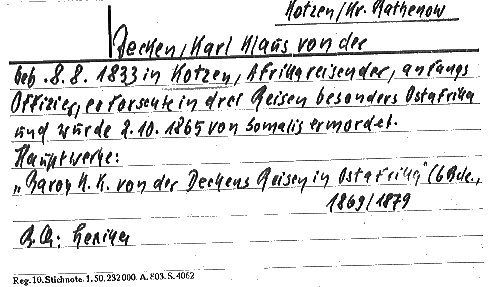 Kotzen/Kr. Rathenow
Decken, Karl Klaus von der
geb. 8.8. 1833 in Kotzen, Afrikareisender, anfangs
Offizier, erforschte in drei Reisen besonders Ostafrika
und wurde 2.10.1865 von Somalis ermordet.
Hauptwerke:
„Baron K. K. von der Deckens Reisen in Ostafrika" (6 Bde.,
1869/1879
Qu.: Lexikon
Reg. 10. Stichnote. 1. 50. 232 000. A. 803. S. 4062